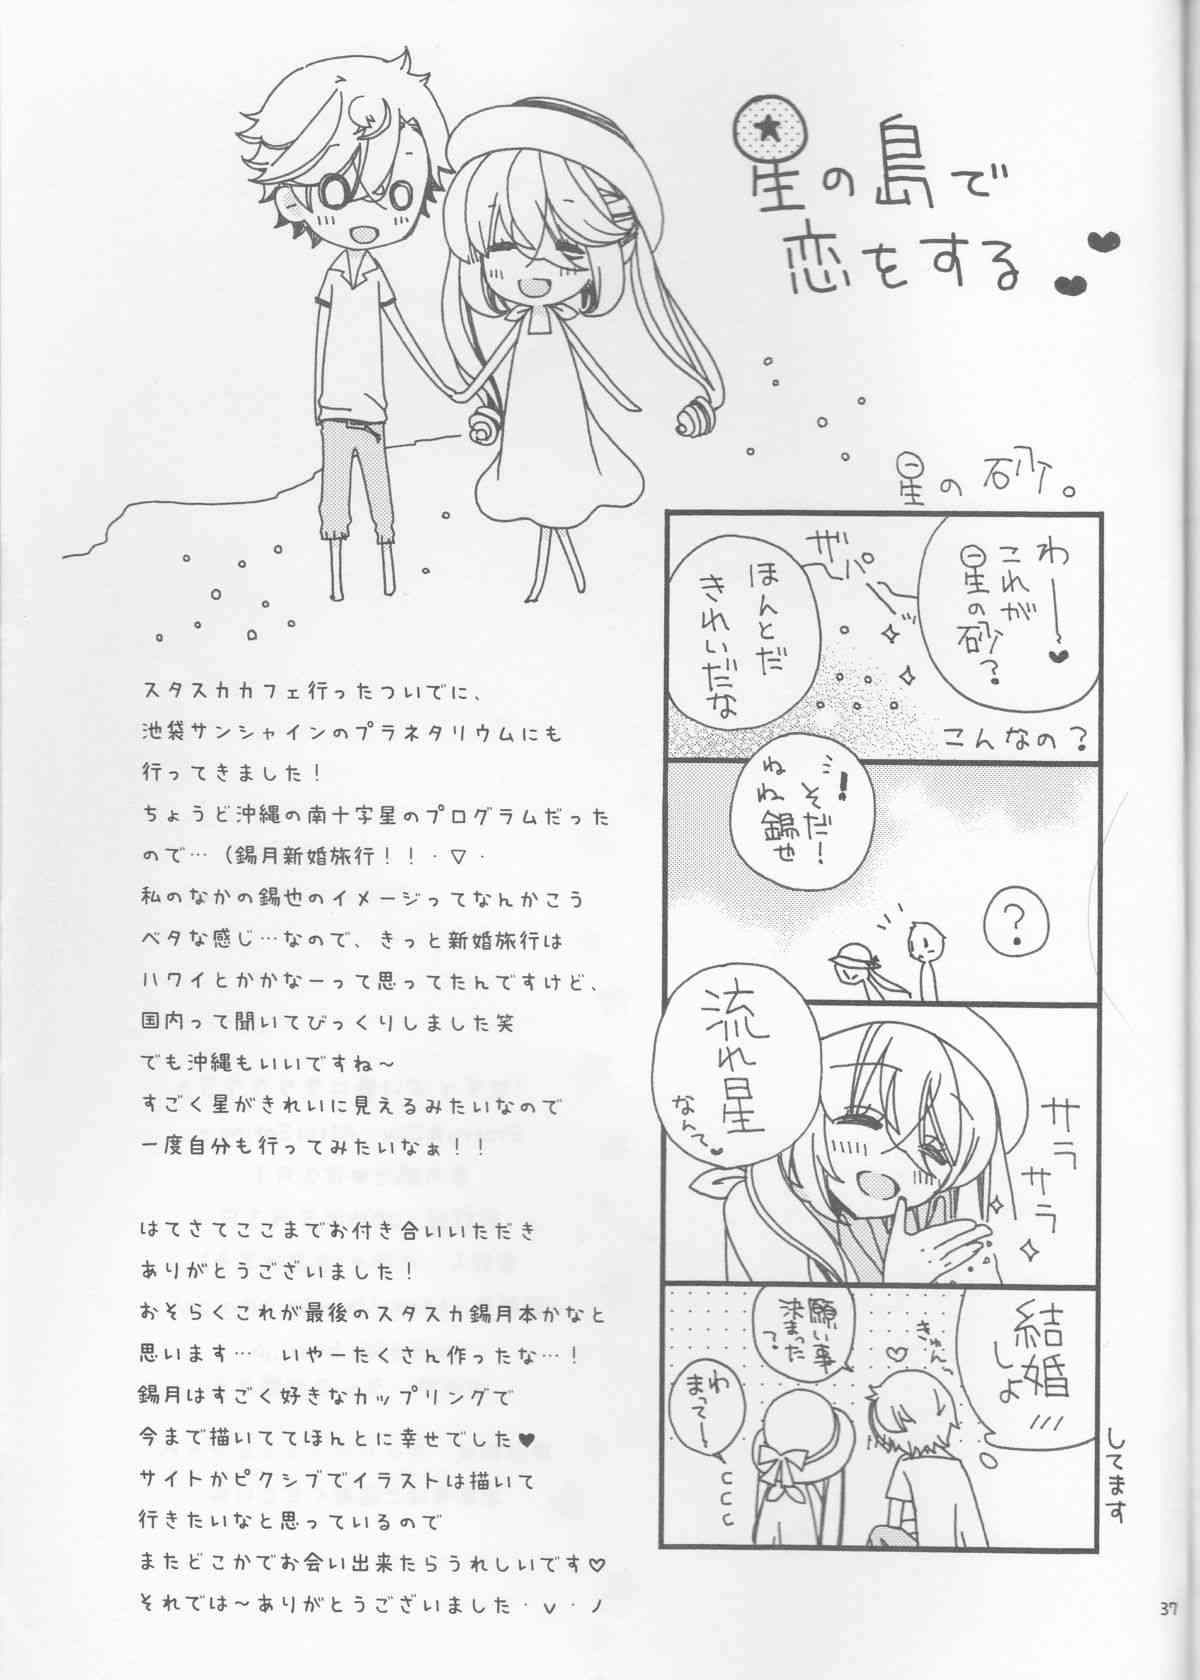 星の島で
恋をする
星の砂。
わーー♥
これが
星の砂?
ザパーン
ほんとだ
きれいだな
こんなの?
そだ!
ねね錫也
?
流れ星
なんて♥
サラ
サラ
結婚
しよ
きゅん〜
♡
願い事
決まった
?
わ
まってー
してます
スタスカカフェ行ったついでに、
池袋サンシャインのプラネタリウムにも
行ってきました!
ちょうど沖縄の南十字星のプログラムだった
ので…(錫月新婚旅行!!・▽・
私のなかの錫也のイメージってなんかこう
ベタな感じ…なので、きっと新婚旅行は
ハワイとかかなーって思ってたんですけど、
国内って聞いてびっくりしました笑
でも沖縄もいいですね~
すごく星がきれいに見えるみたいなので
一度自分も行ってみたいなぁ!!
はてさてここまでお付き合いいただき
ありがとうございました!
おそらくこれが最後のスタスカ錫月本かなと
思います… いやーたくさん作ったな…!
錫月はすごく好きなカップリングで
今まで描いててほんとに幸せでした♥
サイトかピクシブでイラストは描いて
行きたいなと思っているので
またどこかでお会い出来たらうれしいです♡
それでは~ありがとうございました・v・ノ
37